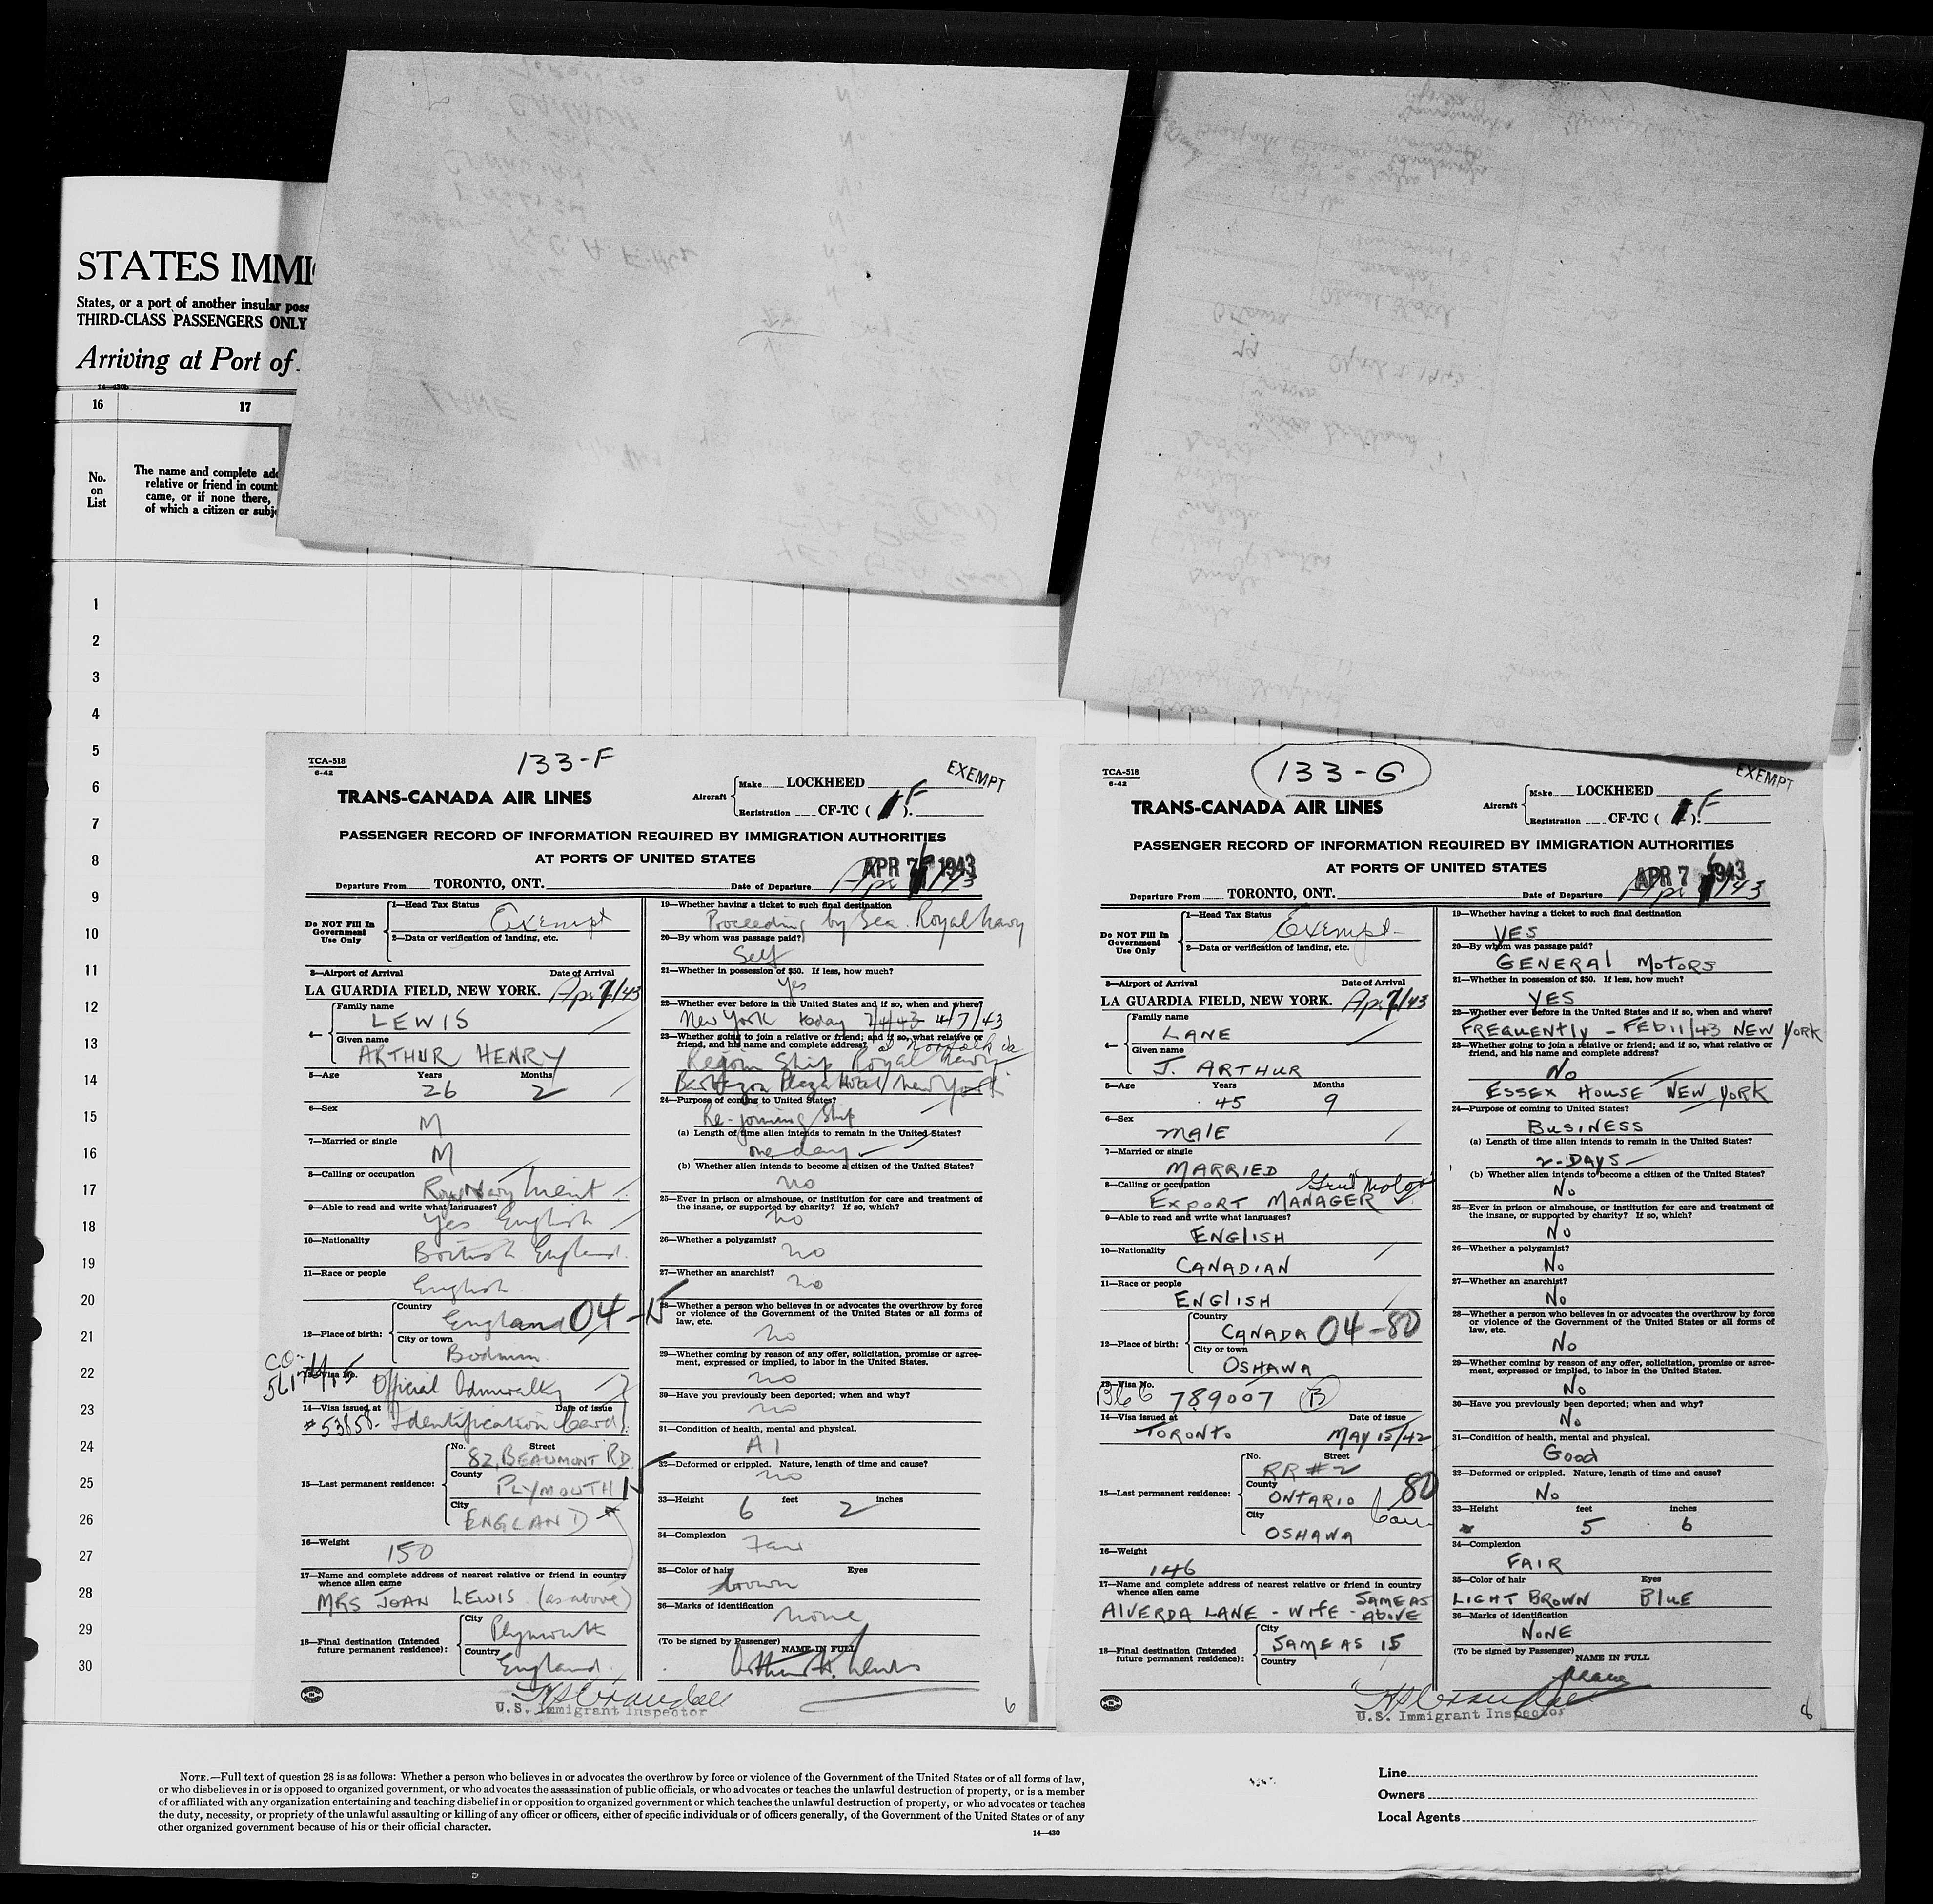 STATES IMMI
States, or a port of another insular poss
THIRD-CLASS PASSENGERS ONLY
Arriving at Port of
14—430b
16 17
No.
on
List
The name and complete add
relative or friend in count
came, or if none there,
of which a citizen or subje
1
2
3
4
5
6
7
8
9
10
11
12
13
14
15
16
17
18
19
20
21
22
23
24
25
26
27
28
29
30
TCA-518
6-42
133-F
EXEMPT
TRANS-CANADA AIR LINES
Aircraft
Make LOCKHEED
Registration CF-TC ( F ).
PASSENGER RECORD OF INFORMATION REQUIRED BY IMMIGRATION AUTHORITIES
AT PORTS OF UNITED STATES
APR 7 1943
Departure From TORONTO, ONT. Date of Departure
Do NOT Fill In
Government
Use Only
1—Head Tax Status
Exempt
2—Data or verification of landing, etc.
3—Airport of Arrival Date of Arrival
LA GUARDIA FIELD, NEW YORK. Apr 7/43
4—
Family name
LEWIS
Given name
ARTHUR HENRY
5—Age Years Months
26 2
6—Sex
M
7—Married or single
M
8—Calling or occupation
Royal Navy Lieut
9—Able to read and write what languages?
Yes English
10—Nationality
British England
11—Race or people
English
12—Place of birth:
Country
England 04-15
City or town
Bodmin
13—Visa No.
Official Admiralty
14—Visa issued at Date of issue
#53858. Identification Card
15—Last permanent residence:
No. Street
82, BEAUMONT RD
County
PLYMOUTH
City
ENGLAND
16—Weight
150
17—Name and complete address of nearest relative or friend in country
whence alien came
MRS JOAN LEWIS (as above)
18—Final destination (Intended
future permanent residence):
City
Plymouth
Country
England
U.S. Immigrant Inspector
19—Whether having a ticket to such final destination
Proceeding by Sea. Royal Navy
20—By whom was passage paid?
Self
21—Whether in possession of $50. If less, how much?
Yes
22—Whether ever before in the United States and if so, when and where?
New York today 7/4/43 4/7/43
23—Whether going to join a relative or friend; and if so, what relative or
friend, and his name and complete address?
Rejoin Ship Royal Navy
Barbizon Plaza Hotel New York
24—Purpose of coming to United States?
Re-joining Ship
(a) Length of time alien intends to remain in the United States?
one day
(b) Whether alien intends to become a citizen of the United States?
no
25—Ever in prison or almshouse, or institution for care and treatment of
the insane, or supported by charity? If so, which?
no
26—Whether a polygamist?
no
27—Whether an anarchist?
no
28—Whether a person who believes in or advocates the overthrow by force
or violence of the Government of the United States or all forms of
law, etc.
no
29—Whether coming by reason of any offer, solicitation, promise or agree-
ment, expressed or implied, to labor in the United States.
no
30—Have you previously been deported; when and why?
no
31—Condition of health, mental and physical.
A1
32—Deformed or crippled. Nature, length of time and cause?
no
33—Height feet inches
6 2
34—Complexion
Fair
35—Color of hair Eyes
brown
36—Marks of identification
none
(To be signed by Passenger)
NAME IN FULL
Arthur H. Lewis
6
TCA-518
6-42
133-G
EXEMPT
TRANS-CANADA AIR LINES
Aircraft
Make LOCKHEED
Registration CF-TC ( F ).
PASSENGER RECORD OF INFORMATION REQUIRED BY IMMIGRATION AUTHORITIES
AT PORTS OF UNITED STATES
APR 7 1943
Departure From TORONTO, ONT. Date of Departure
Do NOT Fill In
Government
Use Only
1—Head Tax Status
Exempt
2—Data or verification of landing, etc.
3—Airport of Arrival Date of Arrival
LA GUARDIA FIELD, NEW YORK. Apr 7/43
4—
Family name
LANE
Given name
J. ARTHUR
5—Age Years Months
45 9
6—Sex
MALE
7—Married or single
MARRIED
8—Calling or occupation
EXPORT MANAGER
9—Able to read and write what languages?
ENGLISH
10—Nationality
CANADIAN
11—Race or people
ENGLISH
12—Place of birth:
Country
CANADA 04-80
City or town
OSHAWA
13—Visa No.
789007 B
14—Visa issued at Date of issue
TORONTO MAY 15/42
15—Last permanent residence:
No. Street
RR #2
County
ONTARIO 80
City
OSHAWA
16—Weight
146
17—Name and complete address of nearest relative or friend in country
whence alien came
ALVERDA LANE - WIFE - SAME AS ABOVE
18—Final destination (Intended
future permanent residence):
City
SAME AS 15
Country
U.S. Immigrant Inspector
19—Whether having a ticket to such final destination
YES
20—By whom was passage paid?
GENERAL MOTORS
21—Whether in possession of $50. If less, how much?
YES
22—Whether ever before in the United States and if so, when and where?
FREQUENTLY - FEB 11/43 NEW YORK
23—Whether going to join a relative or friend; and if so, what relative or
friend, and his name and complete address?
No
ESSEX HOUSE NEW YORK
24—Purpose of coming to United States?
BUSINESS
(a) Length of time alien intends to remain in the United States?
2-DAYS
(b) Whether alien intends to become a citizen of the United States?
No
25—Ever in prison or almshouse, or institution for care and treatment of
the insane, or supported by charity? If so, which?
No
26—Whether a polygamist?
No
27—Whether an anarchist?
No
28—Whether a person who believes in or advocates the overthrow by force
or violence of the Government of the United States or all forms of
law, etc.
No
29—Whether coming by reason of any offer, solicitation, promise or agree-
ment, expressed or implied, to labor in the United States.
No
30—Have you previously been deported; when and why?
No
31—Condition of health, mental and physical.
Good
32—Deformed or crippled. Nature, length of time and cause?
No
33—Height feet inches
5 6
34—Complexion
FAIR
35—Color of hair Eyes
LIGHT BROWN BLUE
36—Marks of identification
NONE
(To be signed by Passenger)
NAME IN FULL
8
NOTE.—Full text of question 28 is as follows: Whether a person who believes in or advocates the overthrow by force or violence of the Government of the United States or of all forms of law,
or who disbelieves in or is opposed to organized government, or who advocates the assassination of public officials, or who advocates or teaches the unlawful destruction of property, or is a member
of or affiliated with any organization entertaining and teaching disbelief in or opposition to organized government or which teaches the unlawful destruction of property, or who advocates or teaches
the duty, necessity, or propriety of the unlawful assaulting or killing of any officer or officers, either of specific individuals or of officers generally, of the Government of the United States or of any
other organized government because of his or their official character.
14—430
Line
Owners
Local Agents